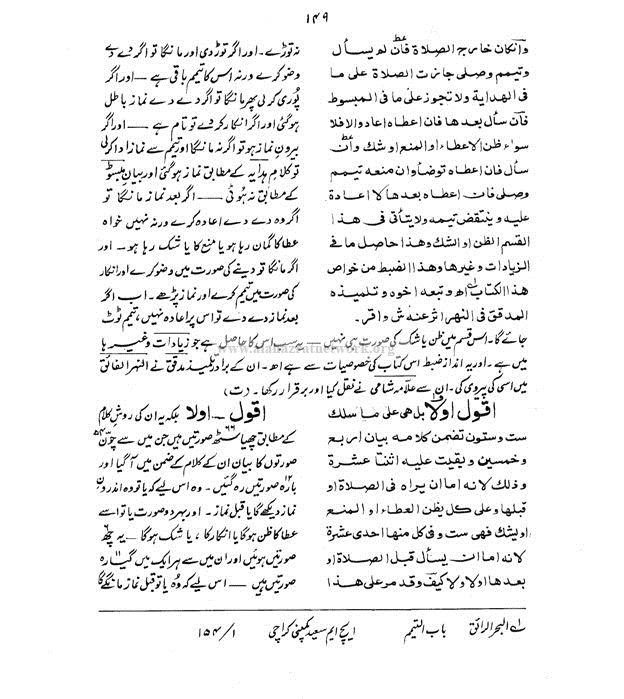 ۱۴۹
وانکان خارج الصلاة فان لم یسأل
وتیمم وصلی جازت الصلاة علی ما
فی الهدایة ولا تجوز علی ما فی المبسوط
فان سأل بعدها فان اعطاه اعاد والا فلا
سواء ظن الاعطاء او المنع او شك وان
سأل فان اعطاه توضأ وان منعه تیمم
وصلی فان اعطاه بعدها لا اعادة
علیه وینتقض تیممه ولا یتأتی فی هذا
القسم الظن او الشك وهذا حاصل ما فی
الزیادات وغیرها وهذا الضبط من خواص
هذا الکتاب اھ وتبعه اخوه وتلمیذه
المدقق فی النهر اثر عنه ش واقر۔
نہ توڑے۔ اور اگر توڑ دی اور مانگا تو اگر دے دے
وضو کرے ورنہ اس کا تیمم باقی ہے — اور اگر
پُوری کرلی پھر مانگا تو اگر دے دے نماز باطل
ہوگئی اور اگر انکار کر دے تو تام ہے — اور اگر
بیرونِ نماز ہو تو اگر نہ مانگا اور تیمم سے نماز ادا کرلی
تو کلامِ ہدایہ کے مطابق نماز ہوگئی اور بیانِ مبسوط
کے مطابق نہ ہُوئی — اگر بعد نماز مانگا تو
اگر وہ دے دے اعادہ کرے ورنہ نہیں خواہ
عطا کا گمان رہا ہو یا منع کا یا شک رہا ہو۔ اور
اگر مانگا تو دینے کی صورت میں وضو کرے اور انکار
کی صورت میں تیمم کرے اور نماز پڑھے۔ اب اگر
بعد نماز دے دے تو اس پر اعادہ نہیں، تیمم ٹوٹ
جائے گا۔ اس قسم میں ظن یا شک کی صورت ہی نہیں — یہ سب اس کا حاصل ہے جو زیادات وغیرہا
میں ہے۔ اور یہ اندازِ ضبط اس کتاب کی خصوصیات سے ہے اھ۔ ان کے برادر وتلمیذ مدقق نے النہر الفائق
میں اسی کی پیروی کی۔ ان سے علامہ شامی نے نقل کیا اور برقرار رکھا۔ (ت)
اقول اولا بل هی علی ما سلك
ست وستون تضمن کلامه بیان اربع
وخمسین وبقیت علیه اثنتا عشرة
وذلك لانه اما ان یراه فی الصلاة او
قبلها وعلی کل یظن العطاء او المنع
او یشك فهی ست وفی کل منها احدی عشرة
لانه اما ان یسأل قبل الصلاة او
بعدها او لا ولا کیف وقد مر علی هذا
اقول — اولا بلکہ یہ ان کی روشِ کلام
کے مطابق چھیاسٹھ ۶۶ صورتیں ہیں جن میں سے چوّن ۵۴
صورتوں کا بیان ان کے کلام کے ضمن میں آگیا اور
بارہ ۱۲ صورتیں رہ گئیں۔ وہ اس لیے کہ یا تو وہ اندرونِ
نماز دیکھے گا یا قبلِ نماز۔ اور بہر دو صورت یا تو اسے
عطا کا ظن ہوگا یا انکار کا، یا شک ہوگا — یہ چھ
صورتیں ہوئیں اور ان میں سے ہر ایک میں گیارہ
صورتیں ہیں — اس لیے کہ وُہ یا تو قبل نماز مانگے گا
ے البحرالرائق    باب التیمم    ایچ ایم سعید کمپنی کراچی    ۱/۱۵۴